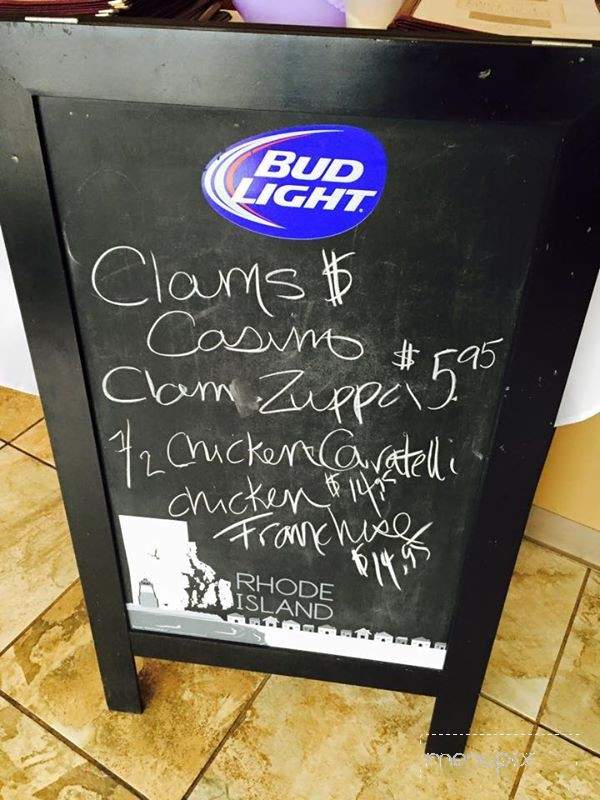 BUD
LIGHT.
Clams $
Casino
Clam Zuppa $5.95
1/2 Chicken Cavatelli
$14.95
chicken
Franchise
$14.95
RHODE
ISLAND
menupix